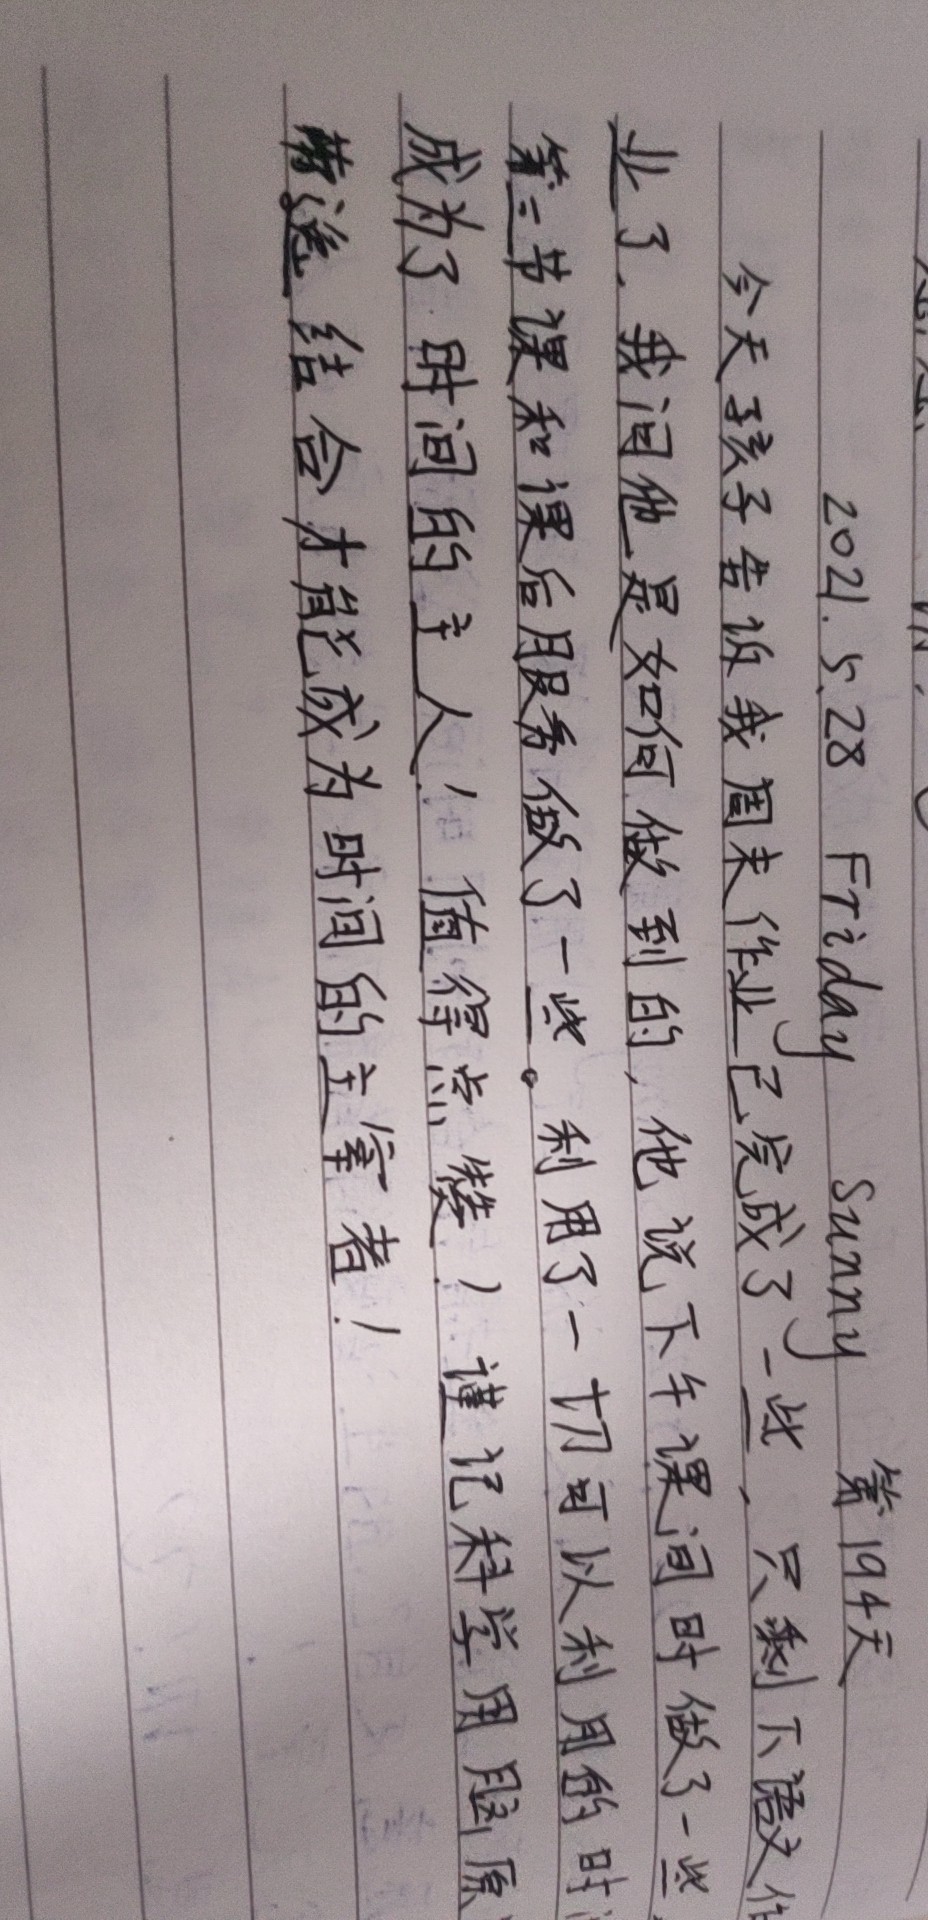 2021.5.28 Friday Sunny 第194天
今天孩子告诉我周末作业已完成了一些,只剩下语文作
业了.我问他是如何做到的,他说下午课间时做了一些
第二节课和课后服务做了一些。利用了一切可以利用的时
成为了时间的主人!值得点赞!谨记科学用脑原
劳逸结合才能成为时间的主宰者!